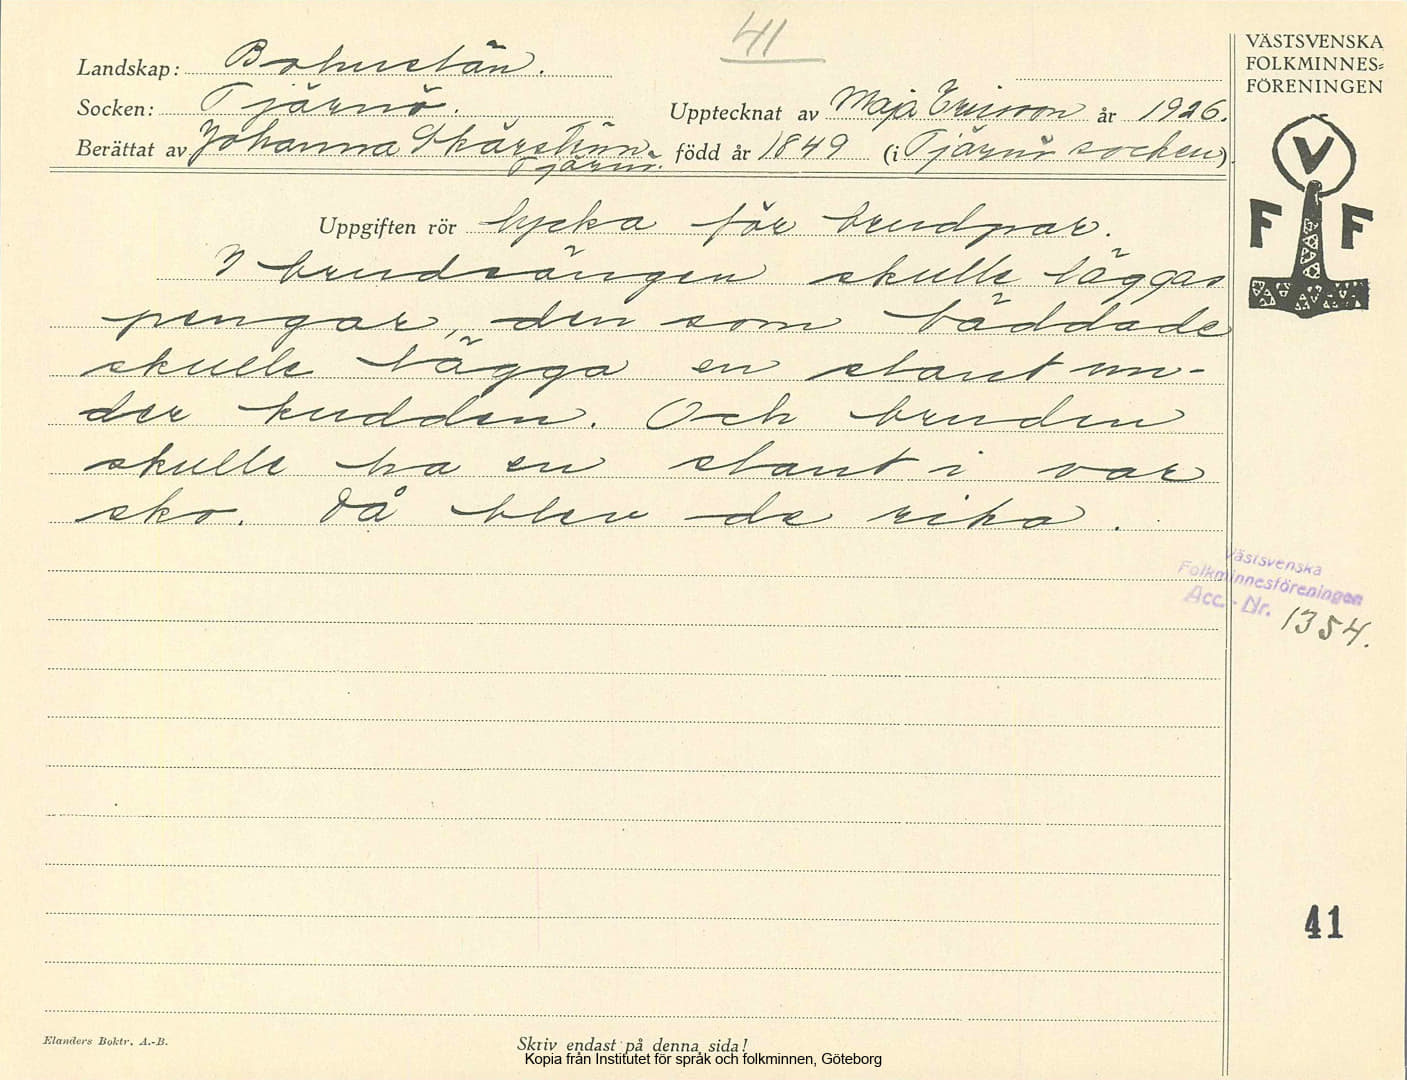 41
Landskap: Bohuslän.
Socken: Tjärnö.
Upptecknat av Maja Ericson år 1926.
Berättat av Johanna Skärström
Tjärnö.
född år 1849 (i Tjärnö socken).
Uppgiften rör lycka för brudpar.
I brudsängen skulle läggas
pengar, den som bäddade
skulle lägga en slant un-
der kudden. Och bruden
skulle ha en slant i var
sko. Då blev de rika.
VÄSTSVENSKA
FOLKMINNES=
FÖRENINGEN
V
F F
Västsvenska
Folkminnesföreningen
Acc.-Nr. 1354.
41
Elanders Boktr. A.-B.
Skriv endast på denna sida!
Kopia från Institutet för språk och folkminnen, Göteborg